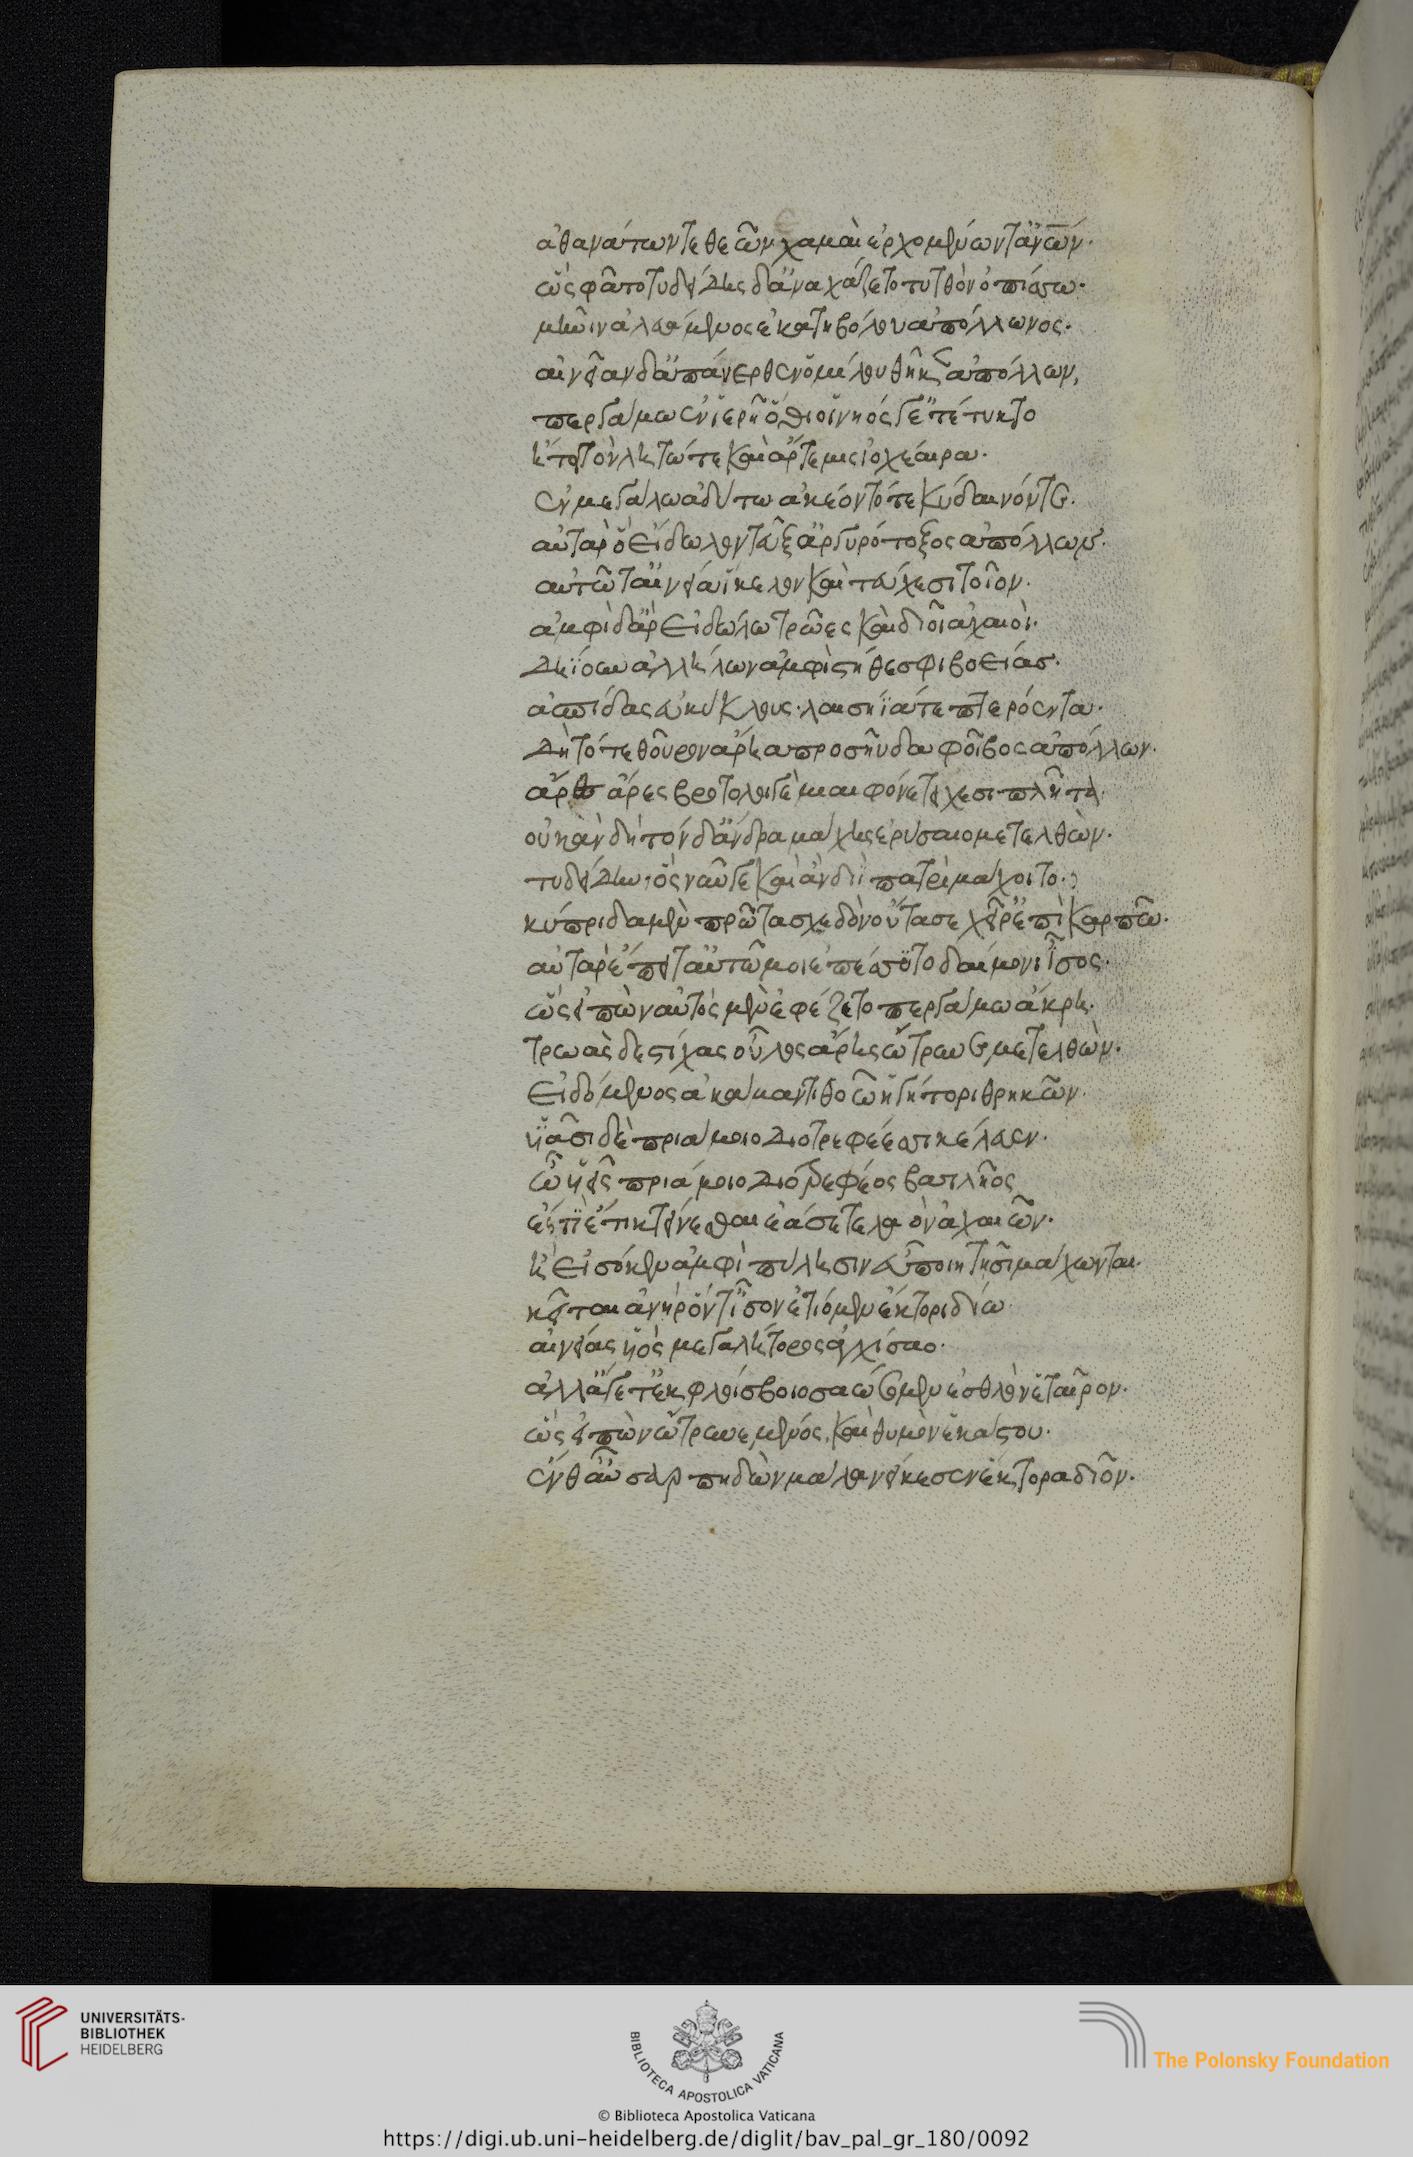 ἀθανάτων τε θεῶν χαμαὶ ἐρχομένων τ' ἀνων·
ὣς φάτο τυδείδης δ' ἀναχάζετο τυτθὸν ὀπίσσω·
μῆνιν ἀλευάμενος ἑκατηβόλου ἀπόλλωνος·
αἰνείαν δ' ἀπάνερθεν ὁμίλου θῆκεν ἀπόλλων,
περγάμω ἐν ἱερῆ ὅθι οἱ νηός γε τέτυκτο
ἤτοι τὸν λητώ τε καὶ ἄρτεμις ἰοχέαιρα·
ἐν μεγάλω ἀδύτω ἀκέοντό τε κύδαινόν τε·
αὐτὰρ ὃ εἴδωλον τεῦξ' ἀργυρότοξος ἀπόλλων·
αὐτῶ τ' αἰνεία ἴκελον καὶ τεύχεσι τοῖον·
ἀμφὶ δ' ἂρ εἰδώλω τρῶες καὶ δῖοι ἀχαιοὶ·
δήϊουν ἀλλήλων ἀμφὶ στήθεσφι βοείας·
ἀσπίδας εὐκύκλους· λαισήϊά τε πτερόεντα·
δὴ τότε θοῦρον ἄρηα προσηύδα φοῖβος ἀπόλλων·
ἆρες ἄρες βροτολοιγὲ μιαιφόνε τειχεσιπλῆτα·
οὐκ ἂν δὴ τόνδ' ἄνδρα μάχης ἐρύσαιο μετελθὼν·
τυδείδην· ὃς νῦν γε καὶ ἂν διῒ πατρὶ μάχοιτο·
κύπριδα μὲν πρῶτα σχεδὸν οὔτασε χεῖρ' ἐπὶ καρπῶ·
αὐτὰρ ἔπειτ' αὐτῶ μοι ἐπέσσυτο δαίμονι ἶσος·
ὣς εἰπὼν αὐτὸς μὲν ἐφέζετο περγάμω ἄκρη·
τρωὰς δὲ στίχας οὖλος ἄρης ὤτρυνε μετελθὼν·
εἰδόμενος ἀκάμαντι θοῶ ἡγήτορι θρηκῶν·
υἱᾶσι δὲ πριάμοιο διοτρεφέεσσι κέλευεν·
ὦ υἱεῖς πριάμοιο διοτρεφέος βασιλῆος
ἐς τί ἔτι κτείνεσθαι ἐάσετε λαὸν ἀχαιῶν·
ἢ εἰσόκεν ἀμφὶ πύλησιν εὐποιητῆσι μάχωνται·
κεῖται ἀνὴρ ὅν τ' ἶσον ἐτίομεν ἕκτορι δίω·
αἰνείας υἱὸς μεγαλήτορος ἀγχίσαο·
ἀλλ' ἄγετ' ἐκ φλοίσβοιο σαώσομεν ἐσθλὸν ἑταῖρον·
ὣς εἰπὼν ὤτρυνε μένος, καὶ θυμὸν ἑκάστου·
ἔνθ' αὖ σαρπηδὼν μάλα νείκεσεν ἕκτορα δῖον·
UNIVERSITÄTS-
BIBLIOTHEK
HEIDELBERG
BIBLIOTECA APOSTOLICA VATICANA
The Polonsky Foundation
© Biblioteca Apostolica Vaticana
https://digi.ub.uni-heidelberg.de/diglit/bav_pal_gr_180/0092